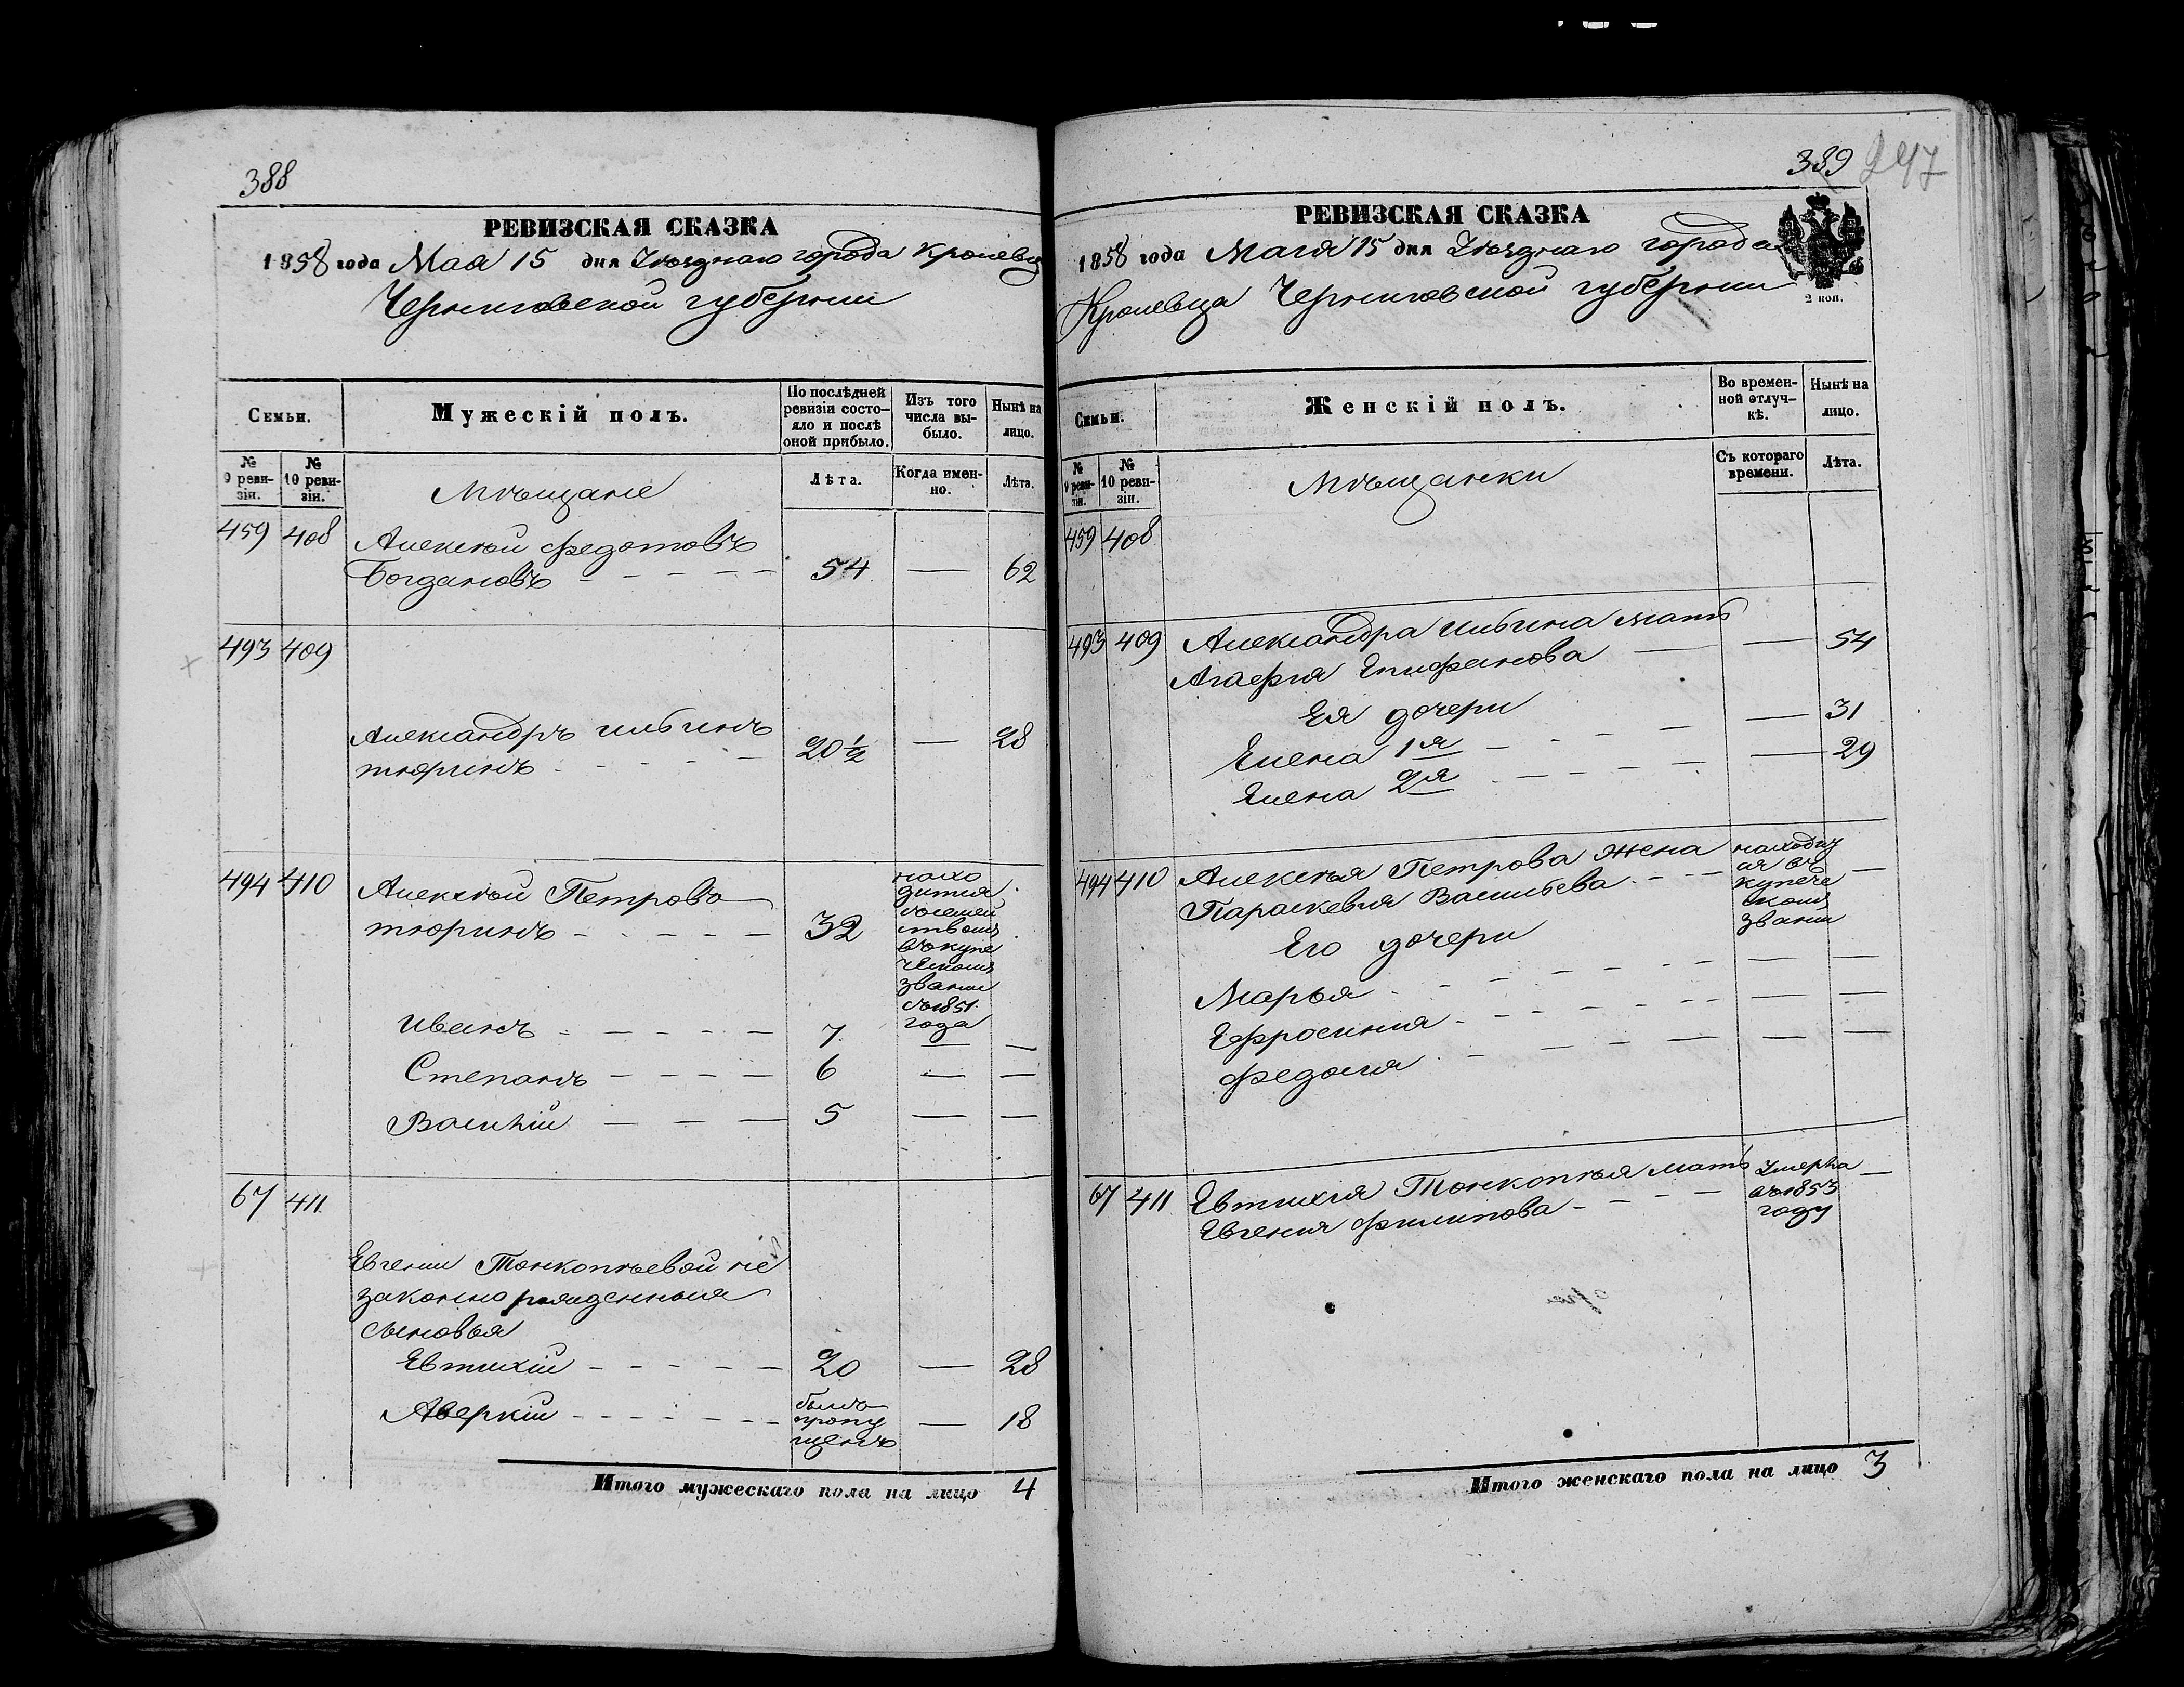 388
РЕВИЗСКАЯ СКАЗКА
1858 года Мая 15 дня Уѣзднаго города Кролевца
Черниговской губерніи
Семьи.
Мужескій полъ.
По послѣдней ревизіи состо-
яло и послѣ
оной прибыло.
Изъ того
числа вы-
было.
Нынѣ на
лицо.
№
9 реви-
зіи.
№
10 реви-
зіи.
Мѣщане
Лѣта.
Когда имен-
но.
Лѣта.
459 408 Алексѣй Федотовъ
Богдановъ 54 — 62
493 409
Александръ Ильинъ
Тюринъ 20½ — 28
494 410 Алексѣй Петровъ
Тюринъ 32
нахо
дится
съ семей
ствомъ
въ купе
ческомъ
званіи
съ 1851
года
Иванъ 7 — —
Степанъ 6 — —
Василій 5 — —
67 411
Евгеніи Тонкопѣевой не
законно рожденныя
сыновья
Евтихій 20 — 28
Аверкій
былъ
пропу
щенъ
— 18
Итого мужескаго пола на лицо 4
389 247
РЕВИЗСКАЯ СКАЗКА
1858 года Маія 15 дня Уѣзднаго города
Кролевца Черниговской губерніи
2 коп.
Семьи.
Женскій полъ.
Во времен-
ной отлуч-
кѣ.
Нынѣ на
лицо.
№
9 реви-
зіи.
№
10 реви-
зіи.
Мѣщанки
Съ котораго
времени.
Лѣта.
459 408
493 409 Александра Ильина мать
Агафія Епифанова — 54
Ея дочери
Елена 1я — 31
Елена 2я — 29
494 410 Алексѣя Петрова жена
Параскевія Васильева
находит
ся въ
купече
скомъ
званіи
—
Его дочери
Марья — —
Ефросинія — —
Федосія — —
67 411 Евтихія Тонкопѣя мать
Евгенія Филипова
Умерла
въ 1853
году
—
Итого женскаго пола на лицо 3